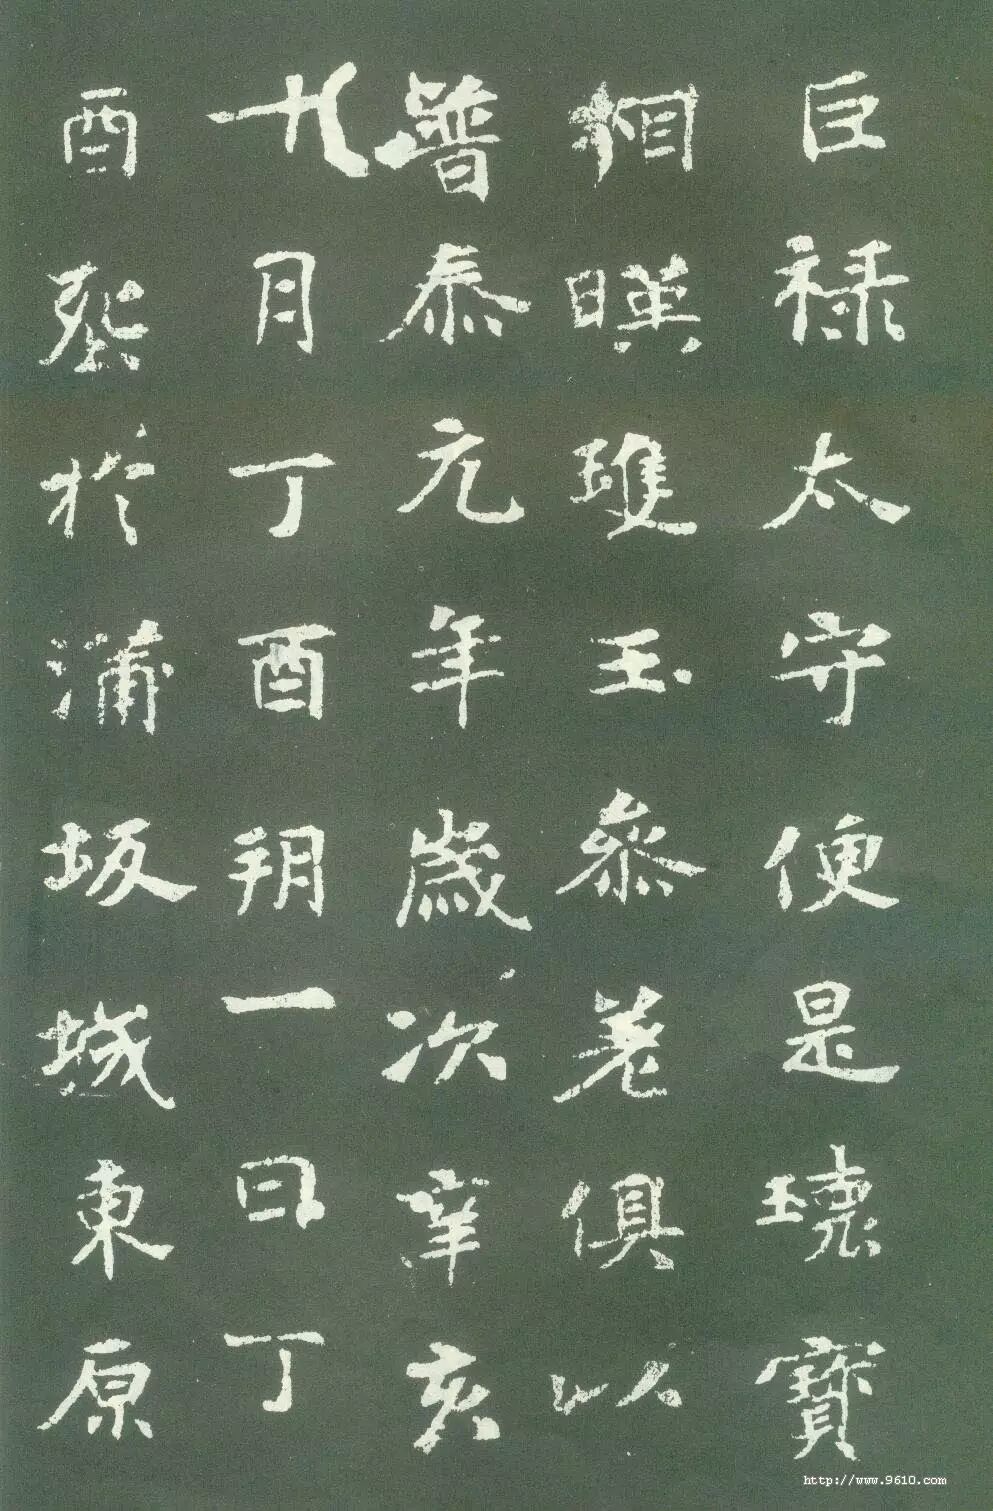 巨祿太守便是瓌寶
相暎瓊玉參差俱以
普泰元年歲次辛亥
十月丁酉朔一日丁
酉葬於蒲坂城東原
http://www.9610.com